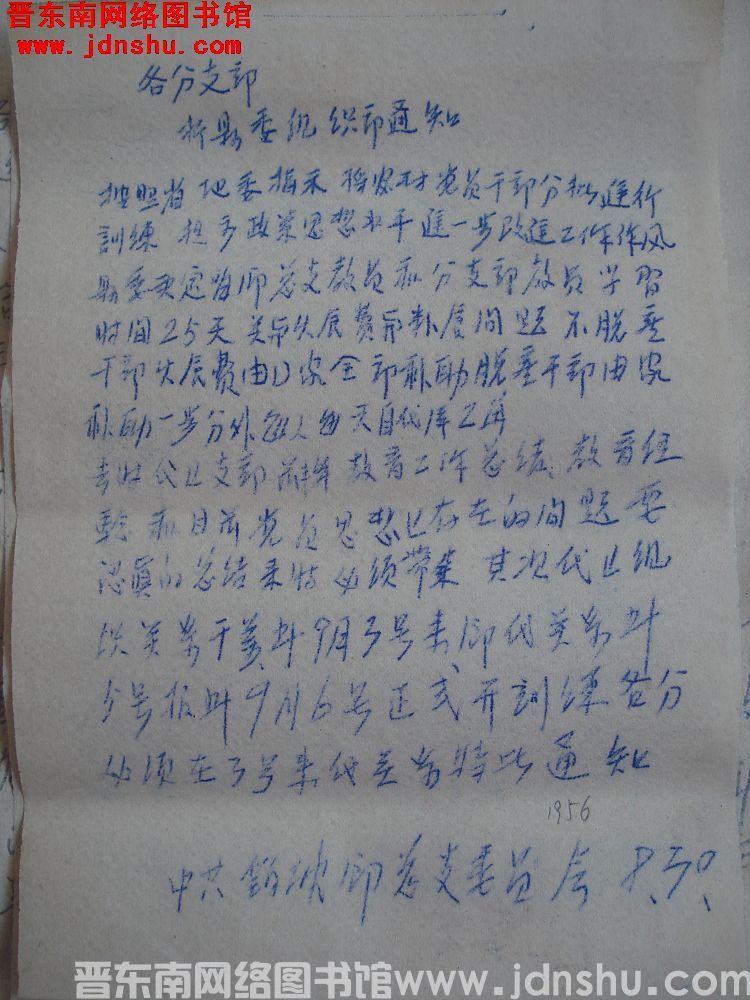 晋东南网络图书馆
www.jdnshu.com
各分支部
折县委组织部通知
按照省地委指示 将农村党员干部分批進行
訓練 提高政策思想水平進一步改進工作作风
县委决定省师总支教员和分支部教员学習
时间25天 关于伙食费吊料食间题 不脱产
干部伙食费由口家全部补助脱产干部由家
补助一步分外每人每天自代库2角
去时代上支部前半年教育工作总结 教育经
驗和目前党员思想上存在的问題要
认真的总结来時必须带来 其次代上组
织关系干粮升9月3号来乡代关系升
5号报到9月6号正式开訓練各分
必须在3号来代关系特此通知
1956
中共 乡总支委員会 8.30.
晋东南网络图书馆www.jdnshu.com